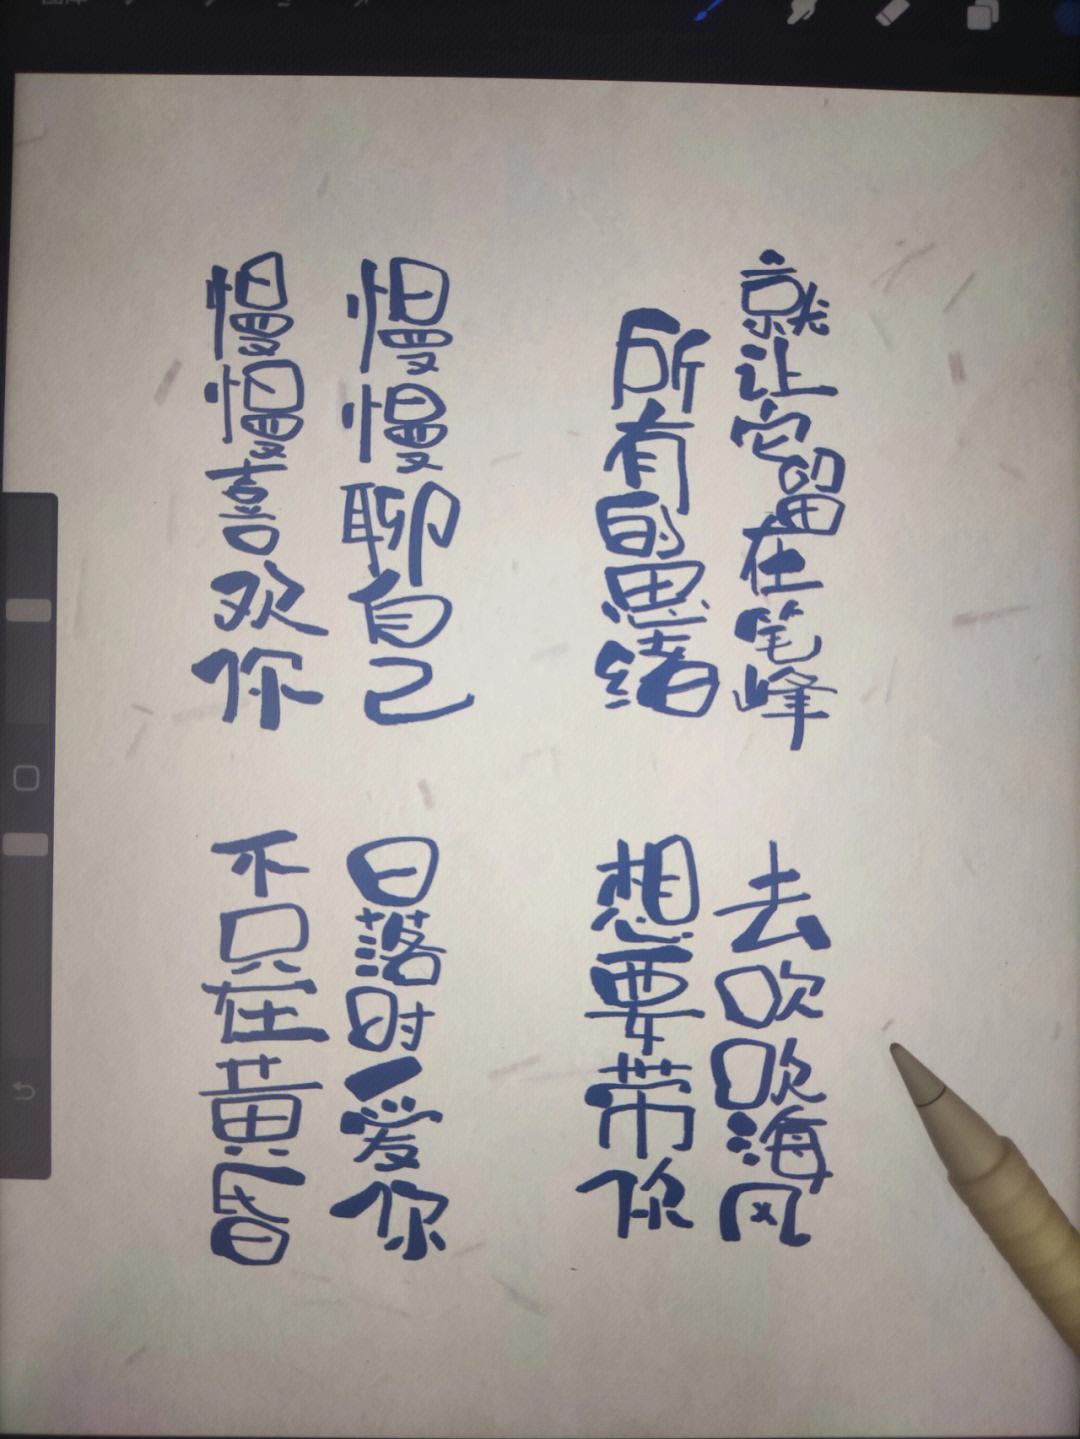 慢慢喜欢你
慢慢聊自己
所有的思绪
就让它留在笔峰
不只在黄昏
日落时爱你
想要带你
去吹吹海风